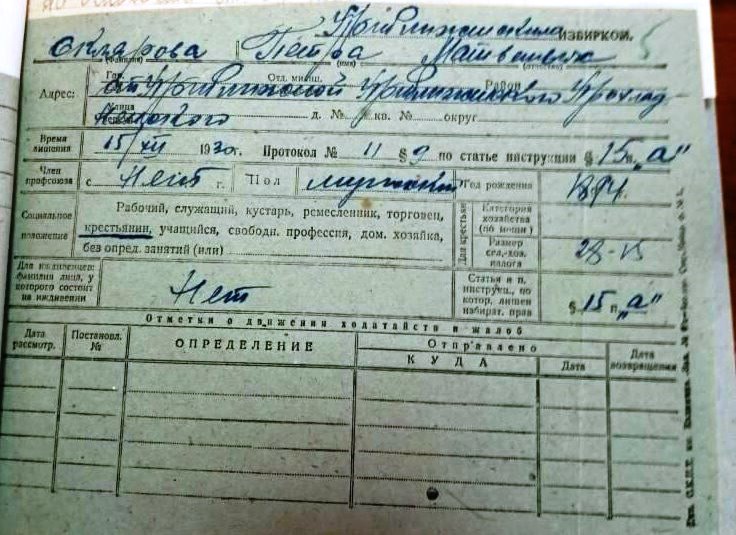 Приближненским ИЗБИРКОМ. 5
Склярова Петра Матвеевича
(фамилия) (имя) (отчество)
Адрес: Гор. Отд. милиц. Район
ст. Приближной Приближненского Прохлад-
Улица д. № кв. № округ
Время лишения 15/XII 1930г. Протокол № 11 § 9 по статье инструкции § 15 п. „а"
Член профсоюза с Нет г. Пол мужской Год рождения
Социальное положение
Рабочий, служащий, кустарь, ремесленник, торговец,
крестьянин, учащийся, свободн. профессия, дом. хозяйка,
без опред. занятий (или)
Для крестьян
Категория хозяйства (по мощн.)
Размер сел.-хоз. налога 28-15
Для иждивенцев: фамилия лица, у которого состоит на иждивении
Нет
Статья и п. инструкц., по котор. лишен избират. прав § 15 п. „а"
Отметки о движении ходатайств и жалоб
Дата рассмотр. Постановл. № ОПРЕДЕЛЕНИЕ Отправлено Дата возвращения
КУДА Дата